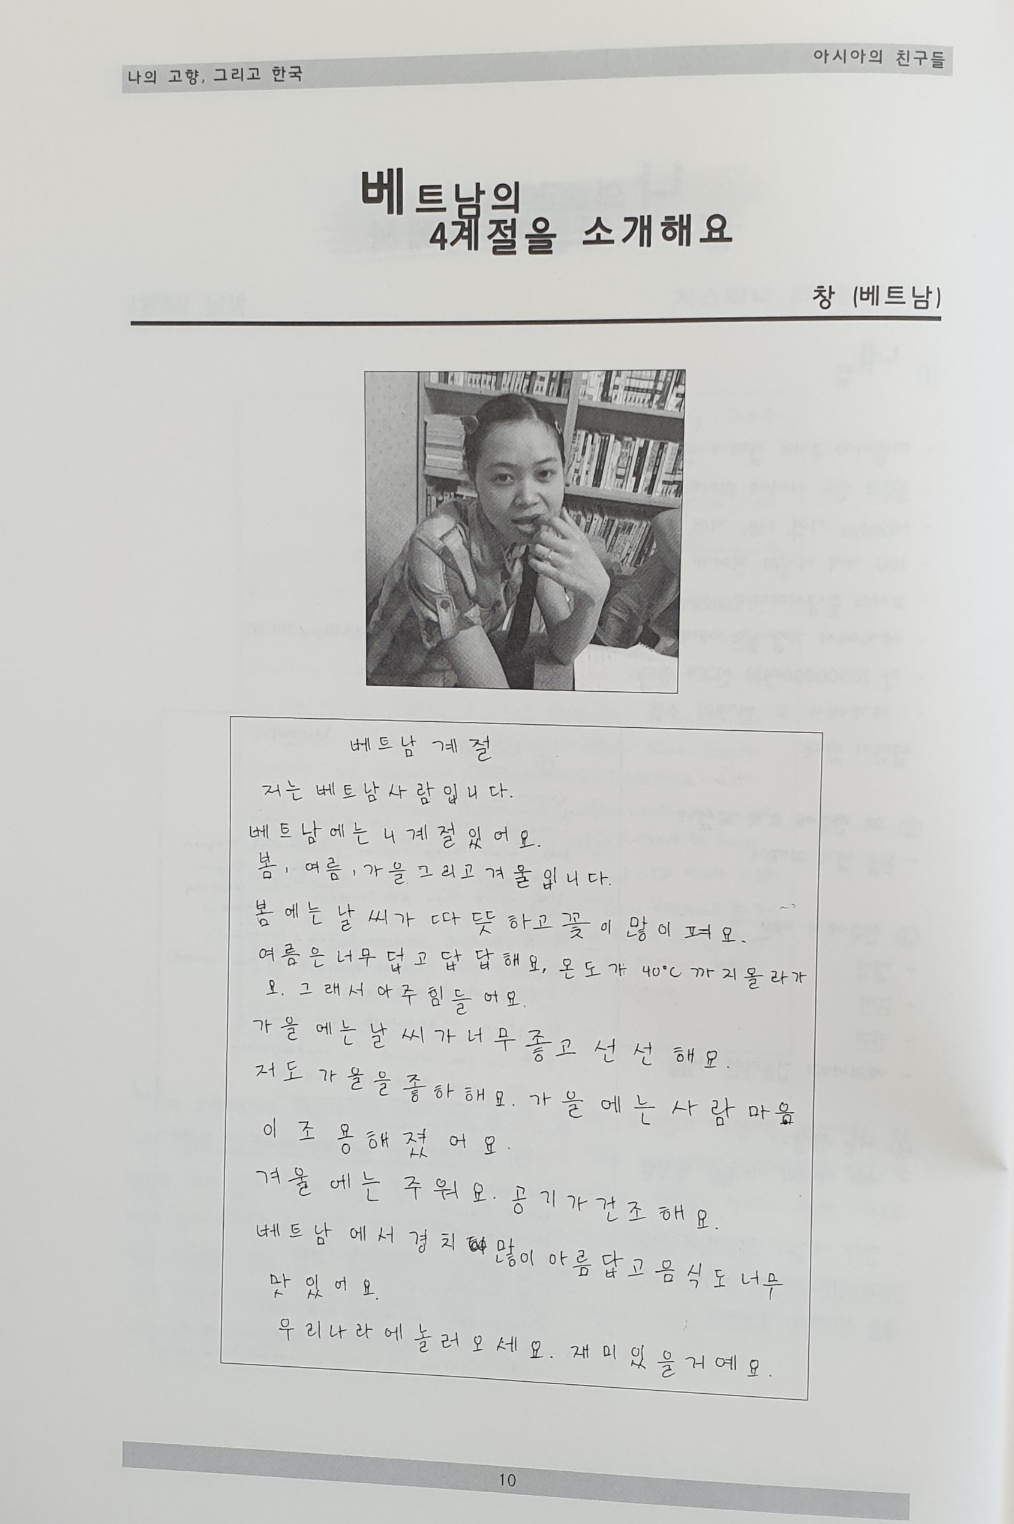 나의 고향, 그리고 한국
아시아의 친구들
베트남의
4계절을 소개해요
창 (베트남)
베트남 계절
저는 베트남사람입니다.
베트남에는 4계절있어요.
봄, 여름, 가을 그리고 겨울입니다.
봄에는 날씨가 따뜻하고 꽃이 많이 펴요.
여름은 너무 덥고 답답해요, 온도가 40°C 까지올라가
요. 그래서 아주 힘들어요.
가을에는 날씨가 너무 좋고 선선해요.
저도 가을을 좋하해요. 가을에는 사람 마음
이 조용해졌어요.
겨울에는 주워요. 공기가 건조해요.
베트남에서 경치 많이 아름답고 음식도 너무
맛있어요.
우리나라에 놀러오세요. 재미있을거예요.
10